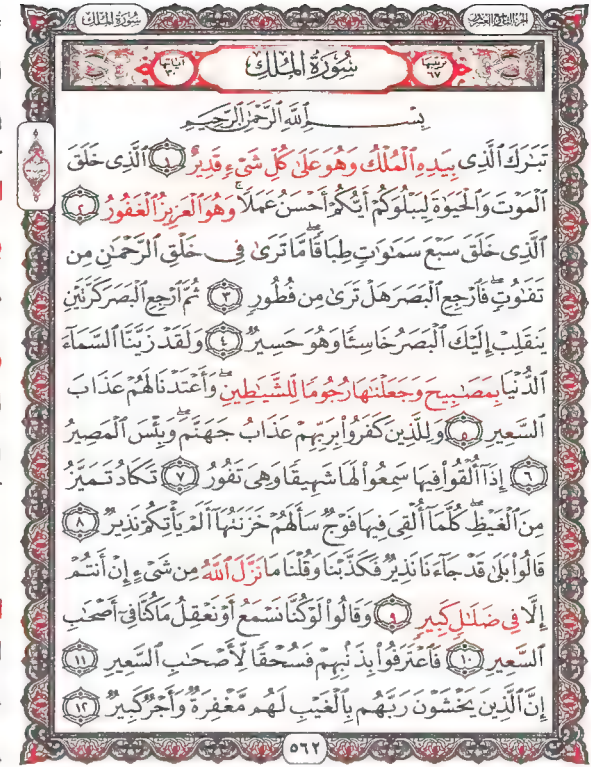 سُورَةُ المُلْك
الجُزءُ التَّاسِعُ وَالعِشْرُونَ
ترتيبها ٦٧
سُورَةُ المُلْكِ
آياتها ٣٠
بِسْمِ ٱللَّهِ ٱلرَّحْمَٰنِ ٱلرَّحِيمِ
تَبَٰرَكَ ٱلَّذِى بِيَدِهِ ٱلْمُلْكُ وَهُوَ عَلَىٰ كُلِّ شَىْءٍ قَدِيرٌ ١ ٱلَّذِى خَلَقَ
ٱلْمَوْتَ وَٱلْحَيَوٰةَ لِيَبْلُوَكُمْ أَيُّكُمْ أَحْسَنُ عَمَلًا ۚ وَهُوَ ٱلْعَزِيزُ ٱلْغَفُورُ ٢
ٱلَّذِى خَلَقَ سَبْعَ سَمَٰوَٰتٍ طِبَاقًا ۖ مَّا تَرَىٰ فِى خَلْقِ ٱلرَّحْمَٰنِ مِن
تَفَٰوُتٍ ۖ فَٱرْجِعِ ٱلْبَصَرَ هَلْ تَرَىٰ مِن فُطُورٍ ٣ ثُمَّ ٱرْجِعِ ٱلْبَصَرَ كَرَّتَيْنِ
يَنقَلِبْ إِلَيْكَ ٱلْبَصَرُ خَاسِئًا وَهُوَ حَسِيرٌ ٤ وَلَقَدْ زَيَّنَّا ٱلسَّمَآءَ
ٱلدُّنْيَا بِمَصَٰبِيحَ وَجَعَلْنَٰهَا رُجُومًا لِّلشَّيَٰطِينِ ۖ وَأَعْتَدْنَا لَهُمْ عَذَابَ
ٱلسَّعِيرِ ٥ وَلِلَّذِينَ كَفَرُوا۟ بِرَبِّهِمْ عَذَابُ جَهَنَّمَ ۖ وَبِئْسَ ٱلْمَصِيرُ
٦ إِذَآ أُلْقُوا۟ فِيهَا سَمِعُوا۟ لَهَا شَهِيقًا وَهِىَ تَفُورُ ٧ تَكَادُ تَمَيَّزُ
مِنَ ٱلْغَيْظِ ۖ كُلَّمَآ أُلْقِىَ فِيهَا فَوْجٌ سَأَلَهُمْ خَزَنَتُهَآ أَلَمْ يَأْتِكُمْ نَذِيرٌ ٨
قَالُوا۟ بَلَىٰ قَدْ جَآءَنَا نَذِيرٌ فَكَذَّبْنَا وَقُلْنَا مَا نَزَّلَ ٱللَّهُ مِن شَىْءٍ إِنْ أَنتُمْ
إِلَّا فِى ضَلَٰلٍ كَبِيرٍ ٩ وَقَالُوا۟ لَوْ كُنَّا نَسْمَعُ أَوْ نَعْقِلُ مَا كُنَّا فِىٓ أَصْحَٰبِ
ٱلسَّعِيرِ ١٠ فَٱعْتَرَفُوا۟ بِذَنۢبِهِمْ فَسُحْقًا لِّأَصْحَٰبِ ٱلسَّعِيرِ ١١
إِنَّ ٱلَّذِينَ يَخْشَوْنَ رَبَّهُم بِٱلْغَيْبِ لَهُم مَّغْفِرَةٌ وَأَجْرٌ كَبِيرٌ ١٢
٥٦٢